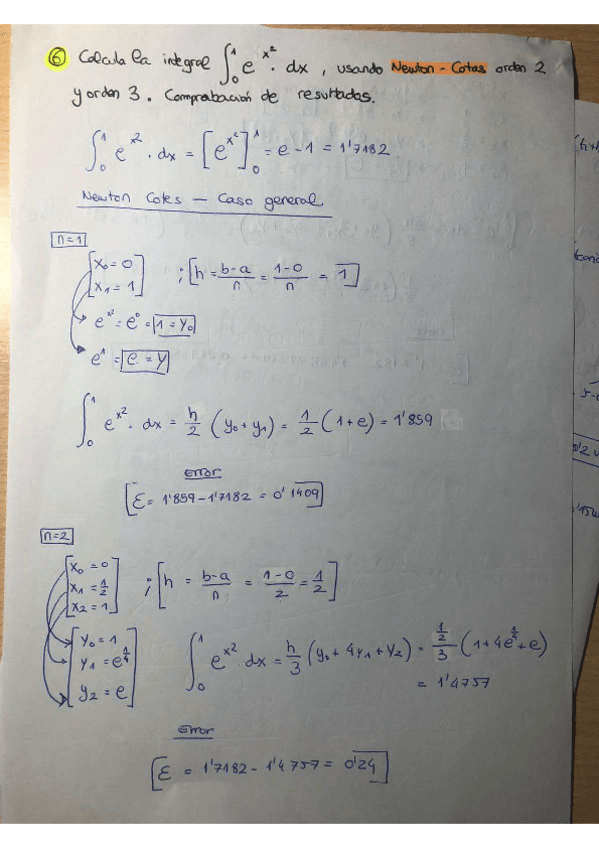 6 Calcula la integral ∫₀¹ e^x² · dx, usando Newton-Cotas orden 2
y orden 3. Comprobación de resultados.
∫₀¹ e^x² · dx = [e^x²]₀¹ = e - 1 = 1'7182
Newton Cotes - Caso general
n=1
[x₀ = 0
x₁ = 1] ; [h = b-a/n = 1-0/n = 1]
e^x² = e⁰ = 1 = y₀
e¹ = e = y
∫₀¹ e^x² · dx = h/2 (y₀ + y₁) = 1/2 (1+e) = 1'859
Error
[ε = 1'859 - 1'7182 = 0'1409]
n=2
[x₀ = 0
x₁ = 1/2
x₂ = 1] ; [h = b-a/n = 1-0/2 = 1/2]
[y₀ = 1
y₁ = e^1/4
y₂ = e]
∫₀¹ e^x² dx = h/3 (y₀ + 4y₁ + y₂) = 1/2/3 (1 + 4e^1/4 + e)
= 1'4757
Error
[ε = 1'7182 - 1'4757 = 0'24]